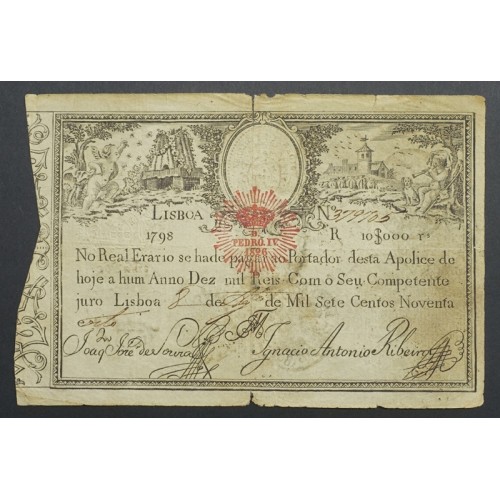 LISBOA
Nº
1798
R 10$000 rs
D.
PEDRO IV
1826
No Real Erario se hade pagar ao Portador desta Apolice de
hoje a hum Anno Dez mil Reis Com o Seu Competente
juro Lisboa 8 de de Mil Sete Centos Noventa
Joaqm José de Souza Ignacio Antonio Ribeiro